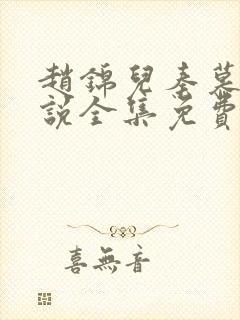 趙錦兒秦慕
說全集免費
喜無音